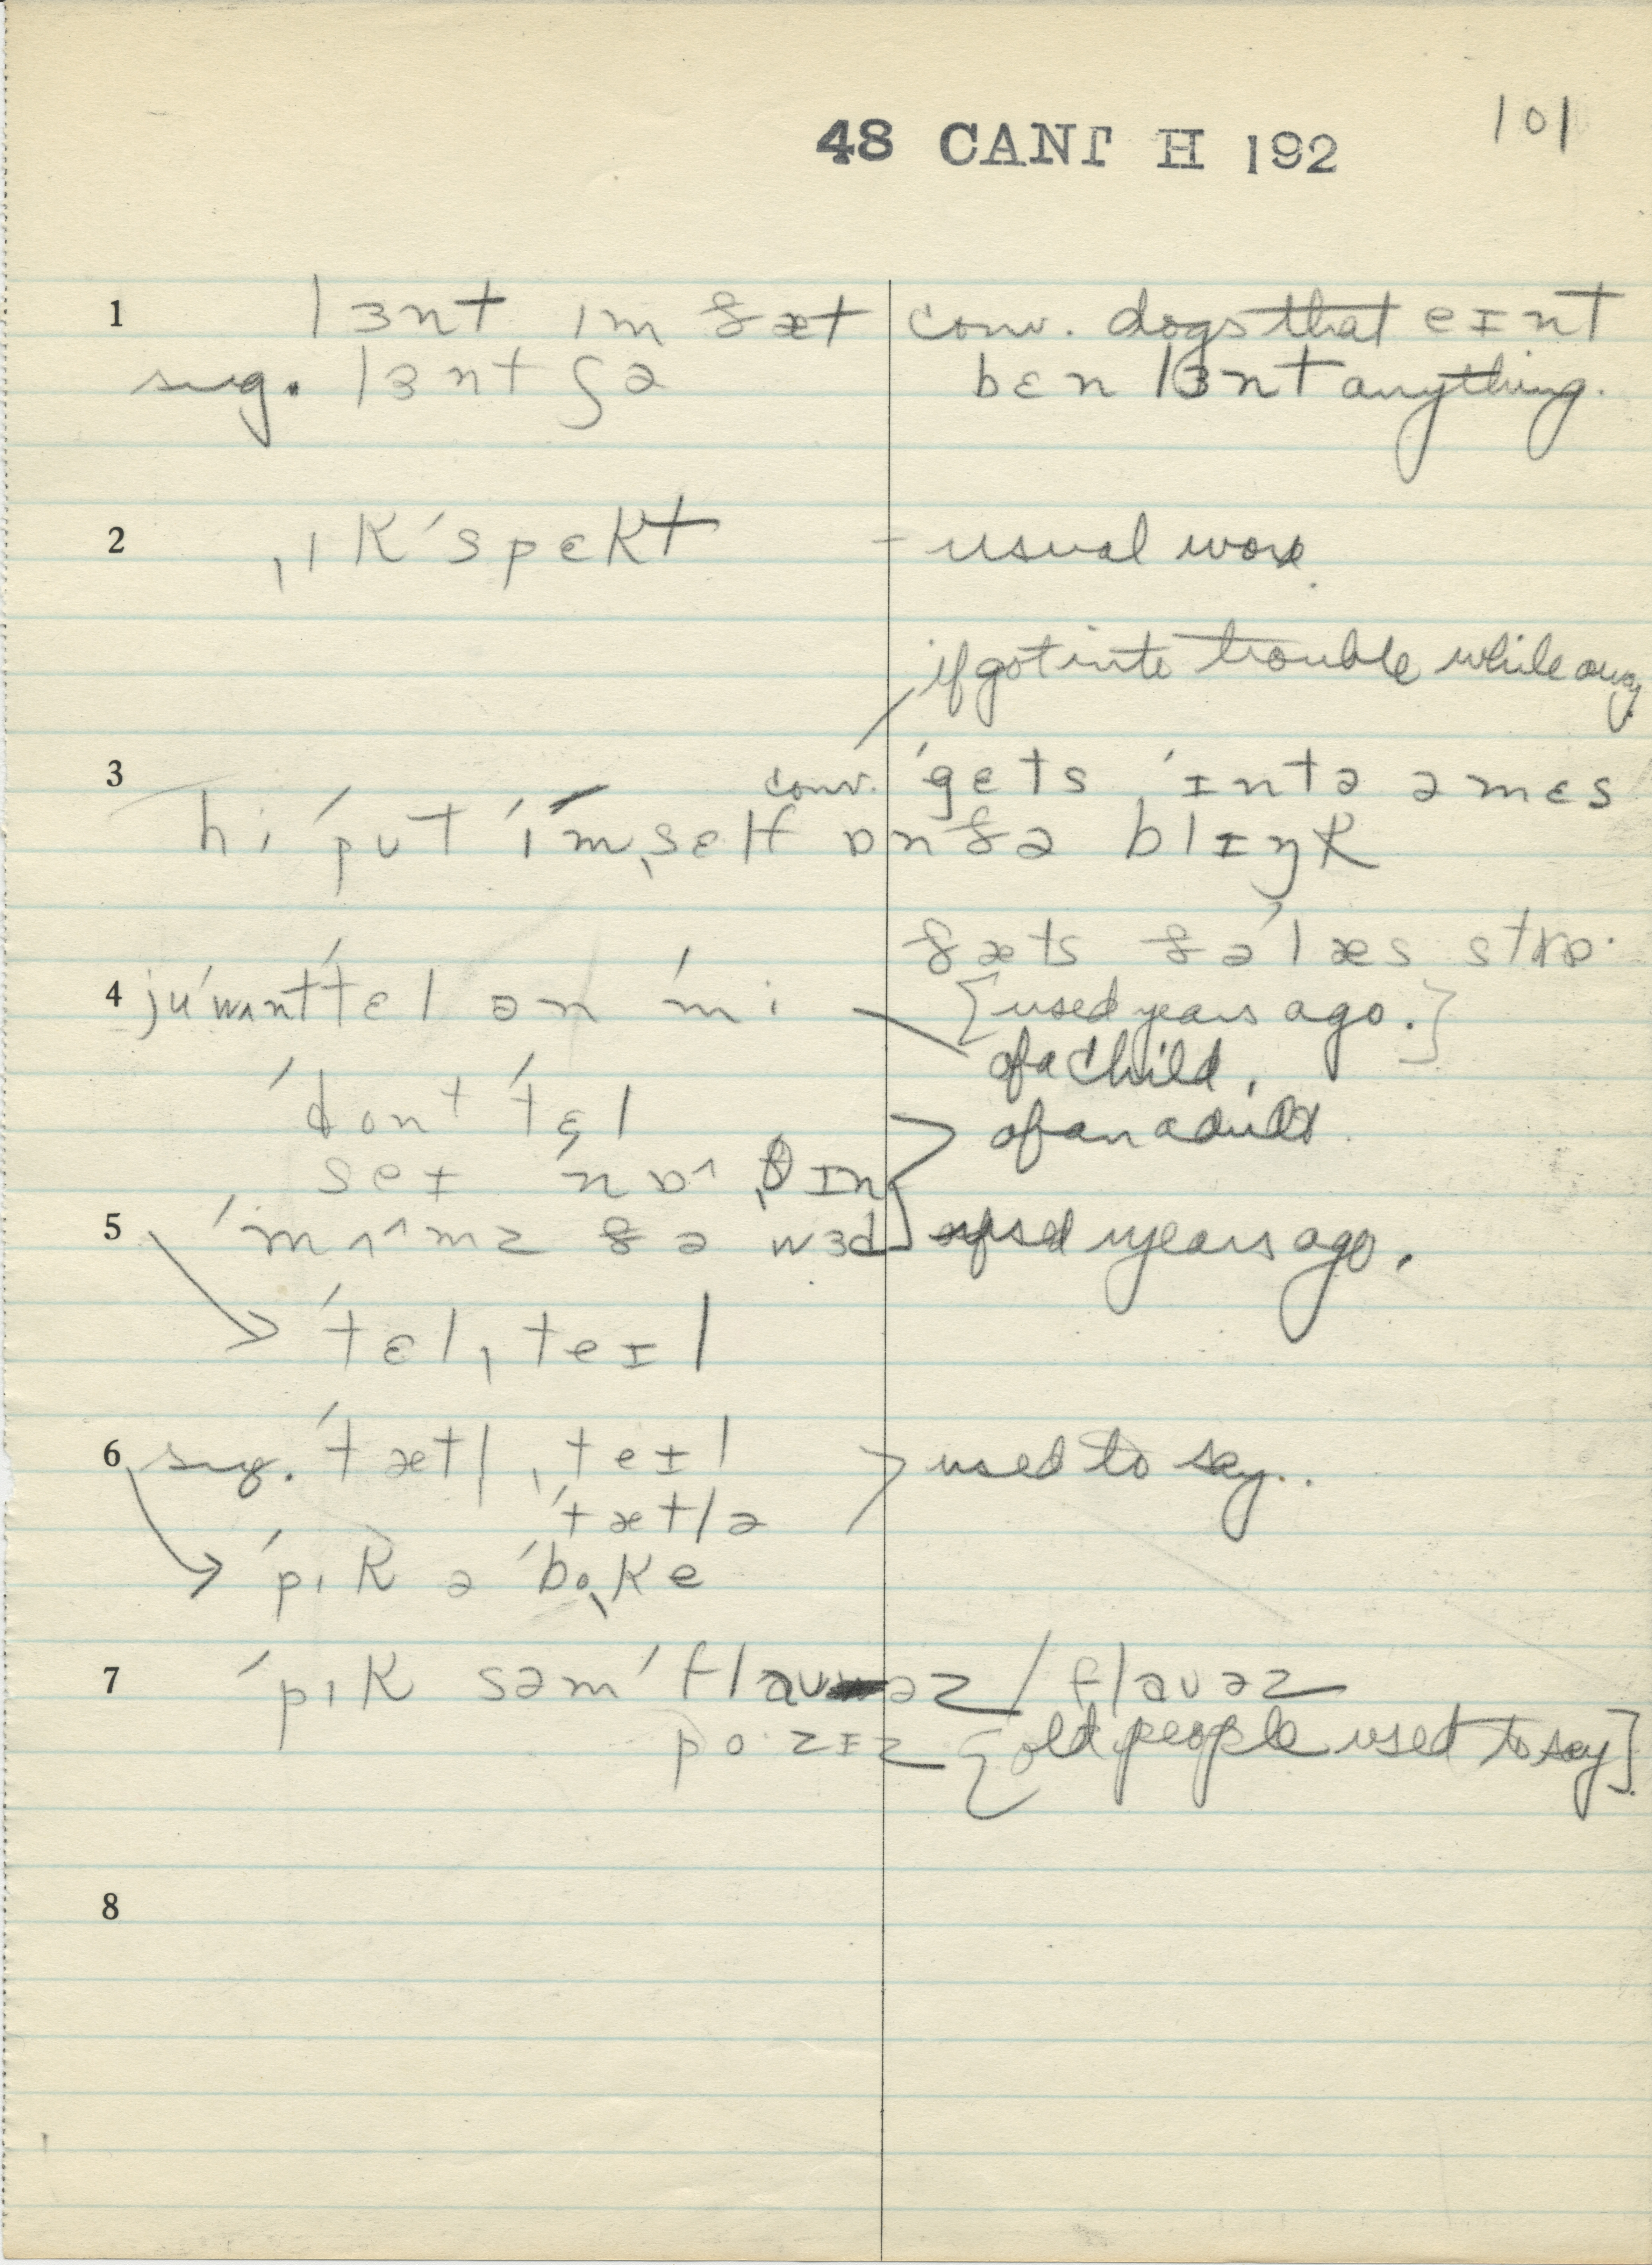 101
48 CANT H 192
1 lɜnt ɪm ðæt conv. dogs that eɪnt
sug. lɜnt ðə bɛn lɜnt anything.
2 ˌɪkˈspɛkt - usual word.
if got into trouble while away.
conv. ˈgɛts ˈɪntə ə mɛs
3 hi ˈput ˈɪmˌsɛlf ɒn ðə blɪŋk
ðæts ðə ˈlæs strɒ·
4 juˈwʌntˈtɛl ən ˈmi [used years ago.]
of a child.
ˈdontˈtɛl of an adult.
seɪ ˈnʌˌθɪn
5 ˈmʌ^mz ðə wɜd used years ago.
ˈtɛlˌteɪl
6 sug. ˈtætlˌteɪl used to say.
ˈtætlə
ˈpɪk ə ˈboˌke
7 ˈpɪk səm ˈflauəz / flauəz
pozɪz [old people used to say]
8